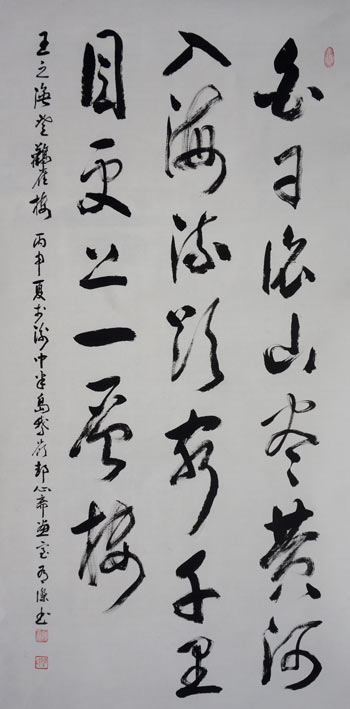 白日依山尽黄河
入海流欲窮千里
目更上一层楼
王之涣登鹳雀楼 丙申夏于渝中半島鵝岭